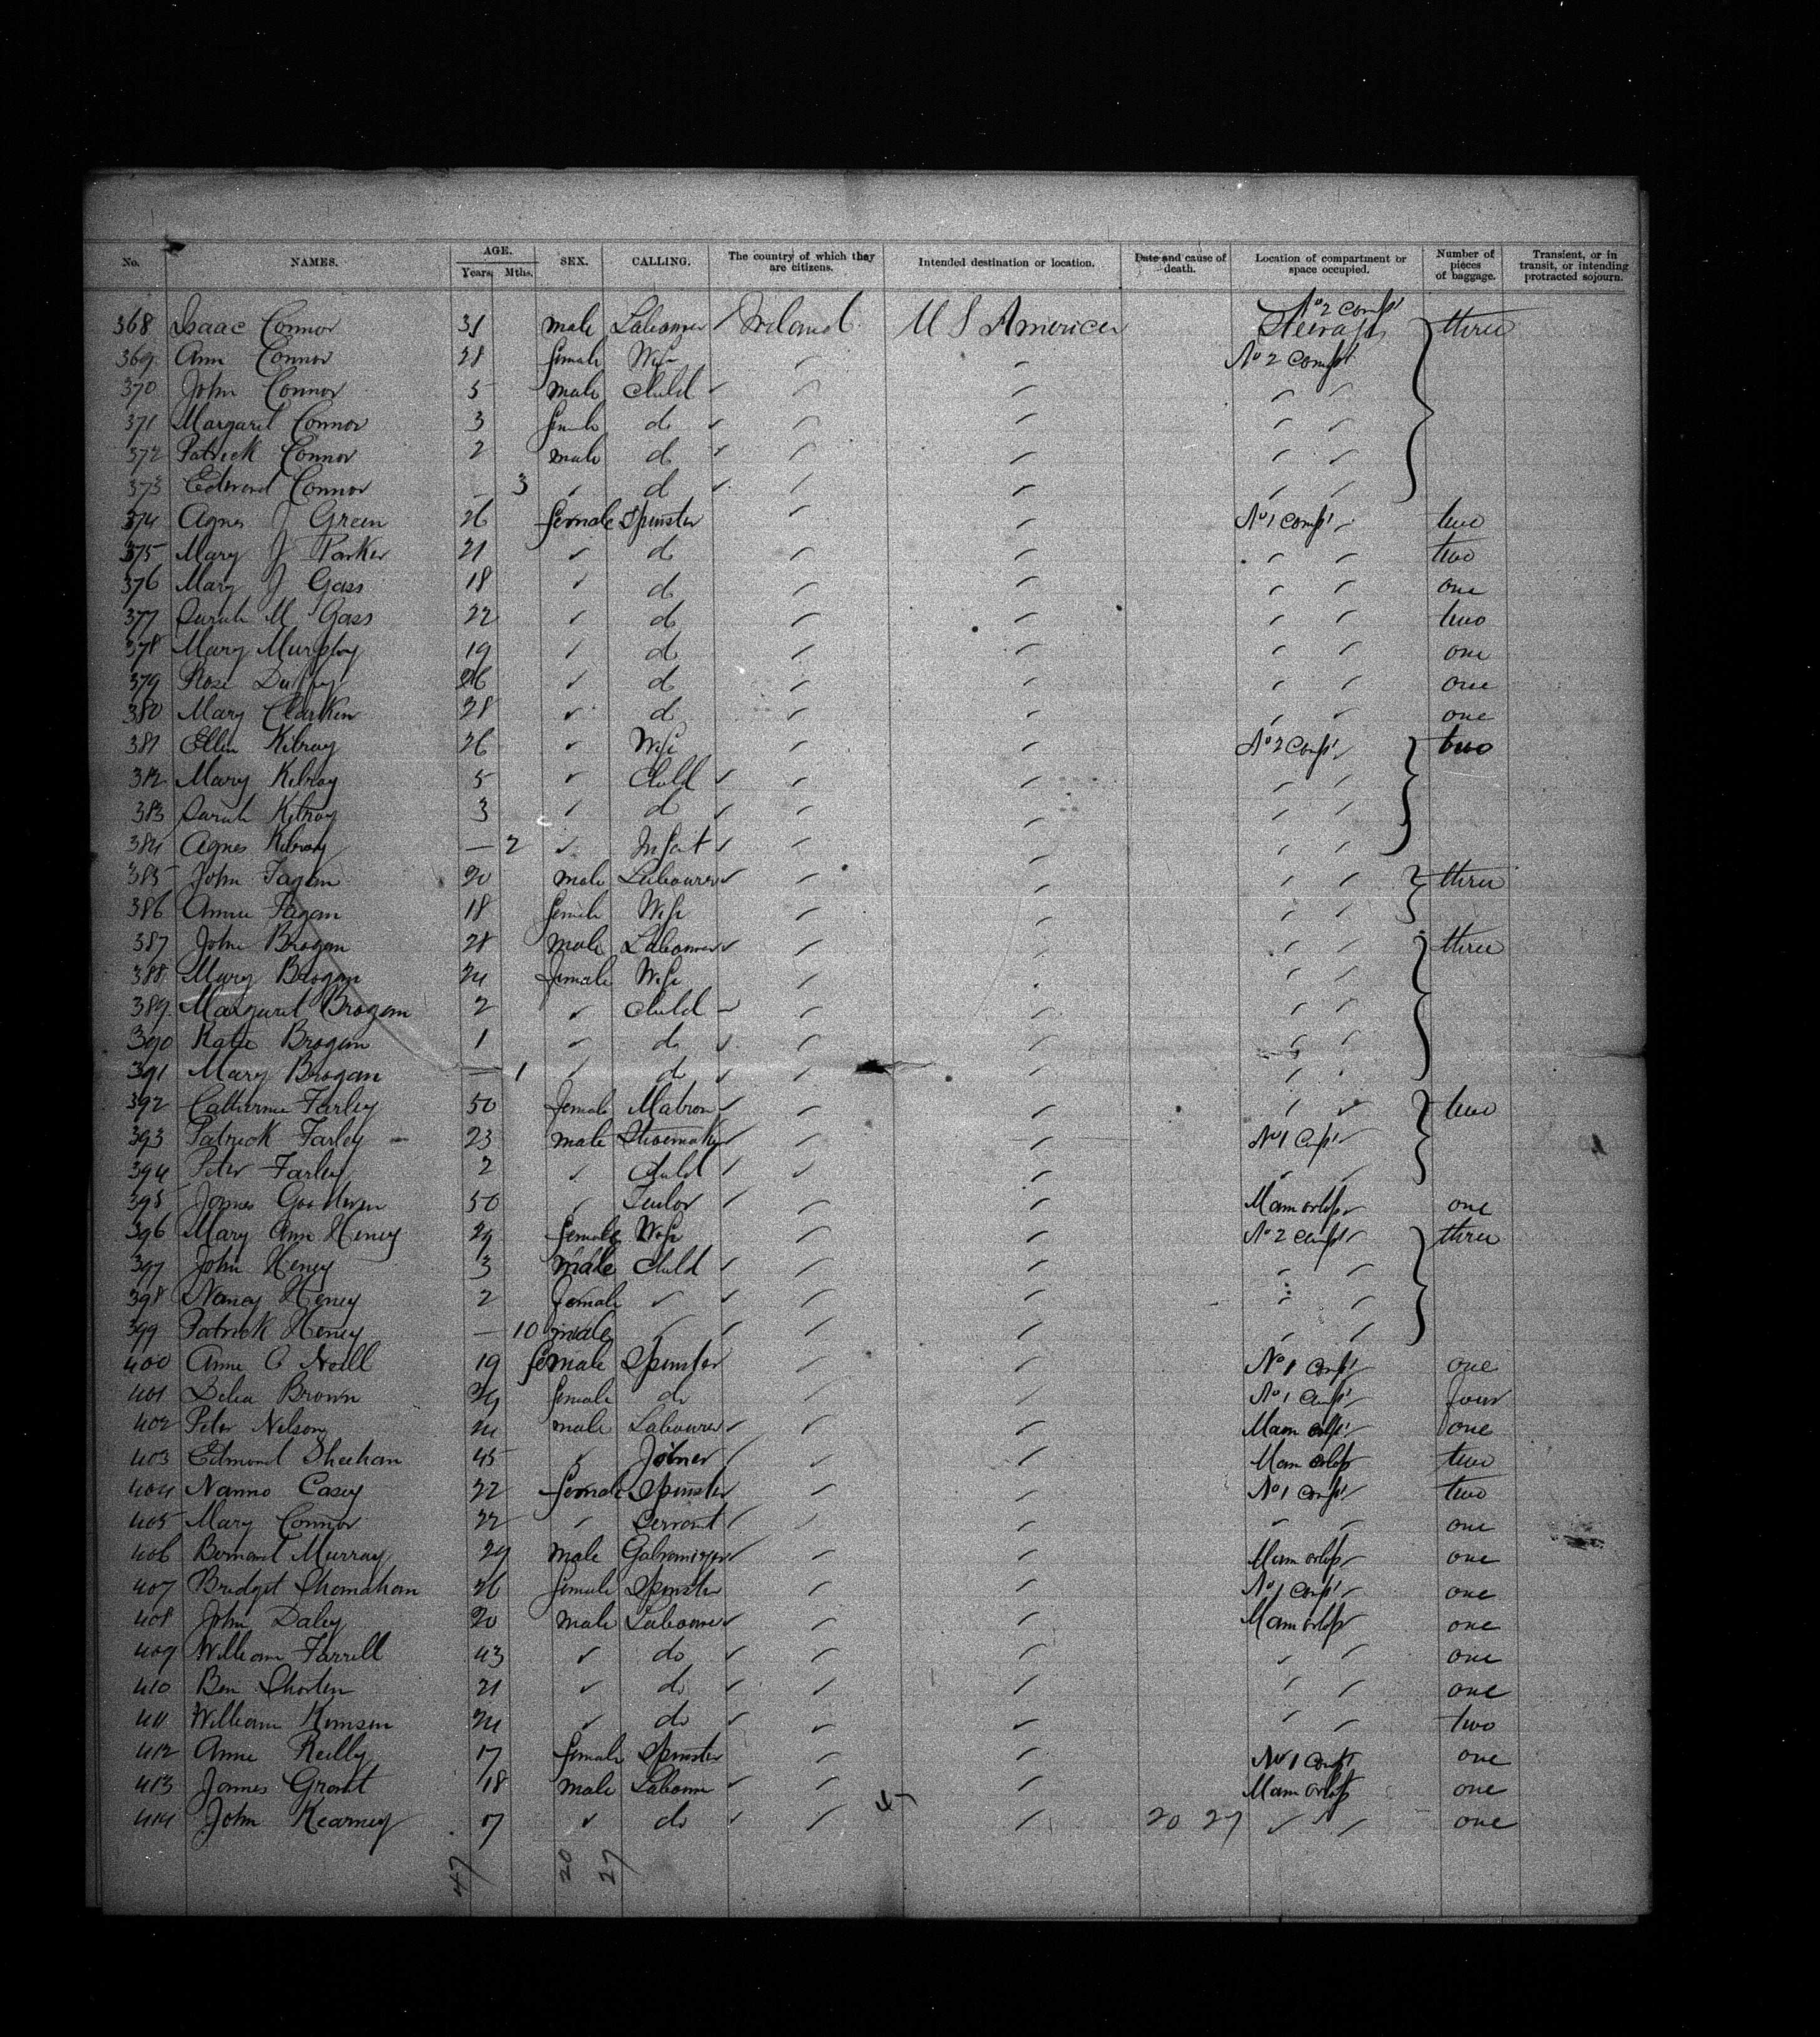 No. NAMES. AGE. Years. Mths. SEX. CALLING. The country of which they are citizens. Intended destination or location. Date and cause of death. Location of compartment or space occupied. Number of pieces of baggage. Transient, or in transit, or intending protracted sojourn.
368 Isaac Connor 31 male Labourer ✓ Ireland U S America No 2 Compt Steerage three
369 Ann Connor 28 female Wife No 2 Compt
370 John Connor 5 male Child ✓
371 Margaret Connor 3 female do ✓
372 Patrick Connor 2 male do ✓
373 Edward Connor – 3 ✓ do ✓
374 Agnes J Green 26 female Spinster No 1 Compt two
375 Mary J Parker 21 ✓ do two
376 Mary J Gass 18 ✓ do one
377 Sarah M Gass 22 ✓ do two
378 Mary Murphy 19 ✓ do one
379 Rose Duffy 26 ✓ do one
380 Mary Clarkin 28 ✓ do one
381 Ellen Kilroy 26 ✓ Wife No 2 Compt two
382 Mary Kilroy 5 ✓ Child ✓
383 Sarah Kilroy 3 ✓ do ✓
384 Agnes Kilroy — 2 ✓ Infant ✓
385 John Fagan 20 male Labourer ✓ three
386 Annie Fagan 18 female Wife
387 John Brogan 28 male Labourer ✓ three
388 Mary Brogan 24 female Wife
389 Margaret Brogan 2 ✓ Child
390 Katie Brogan 1 ✓ do ✓
391 Mary Brogan — 1 ✓ do ✓
392 Catherine Farley 50 female Matron ✓ two
393 Patrick Farley 23 male Shoemaker ✓ No 1 Compt
394 Peter Farley 2 ✓ Child ✓
395 James Goodwin 50 ✓ ✓ Main orlop one
396 Mary Ann Heney 29 female Wife No 2 Compt three
397 John Heney 3 male Child ✓
398 Nancy Heney 2 female ✓ ✓
399 Patrick Heney — 10 male ✓ ✓
400 Anne O Neill 19 female Spinster No 1 Compt one
401 Delia Brown female do No 1 Compt four
402 Peter Nelson 24 male Labourer ✓ Main orlop one
403 Edmond Sheehan 45 ✓ Joiner ✓ Main orlop two
404 Nanno Casey 22 female Spinster No 1 Compt two
405 Mary Connor 22 ✓ Servant ✓ one
406 Bernard Murray 29 male ✓ Main orlop one
407 Bridget Shanahan 26 female Spinster No 1 Compt one
408 John Daley 20 male Labourer ✓ Main orlop one
409 William Farrell 43 ✓ do ✓ one
410 Ben Shorten 21 ✓ do ✓ one
411 William 24 ✓ do ✓ two
412 Anne Reilly 17 female Spinster No 1 Compt one
413 James Grant 18 male Labourer ✓ Main orlop one
414 John Kearney 17 ✓ do ✓ 20 27 one
47 20 27